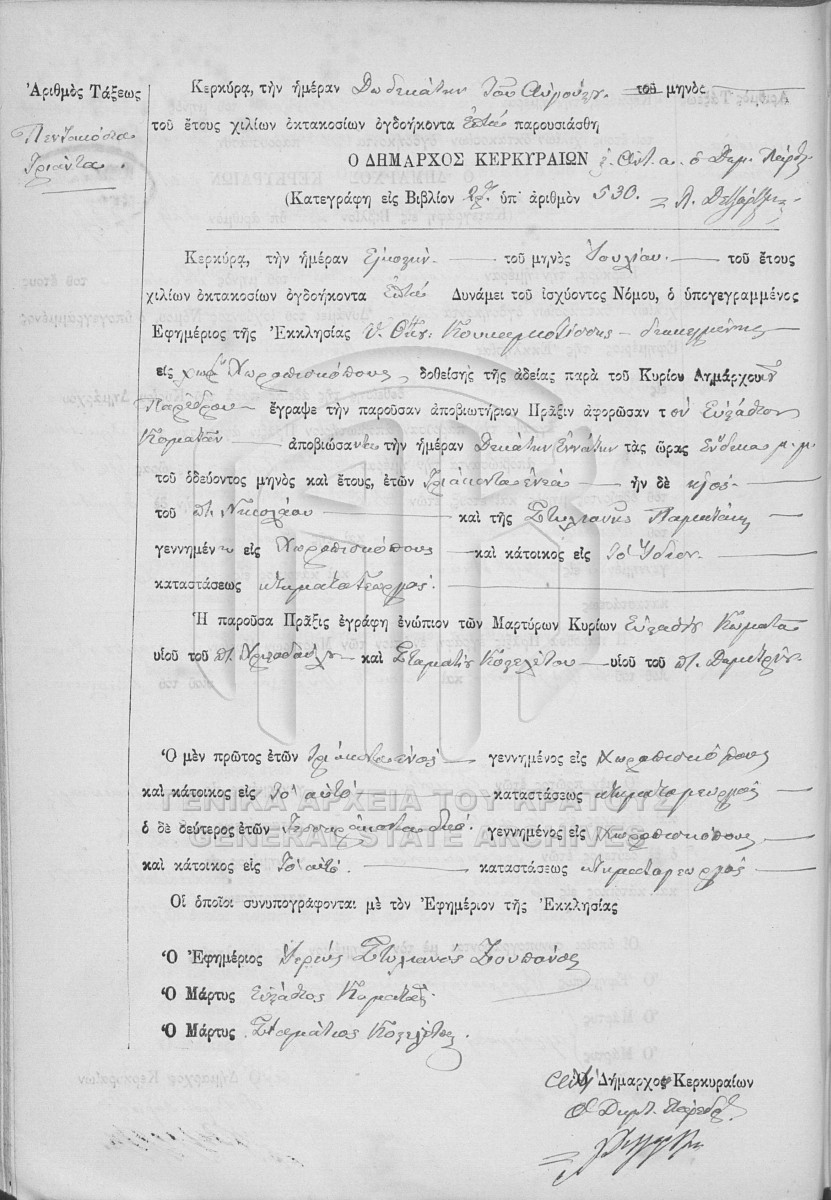 Ἀριθμὸς Τάξεως
Πεντακόσια
Τριάντα.
Κερκύρα, τὴν ἡμέραν Δωδεκάτην τοῦ Αὐγούστου τοῦ μηνὸς
τοῦ ἔτους χιλίων ὀκτακοσίων ὀγδοήκοντα ἑπτὰ παρουσιάσθη
Ὁ ΔΗΜΑΡΧΟΣ ΚΕΡΚΥΡΑΙΩΝ
(Κατεγράφη εἰς Βιβλίον ὑπ' ἀριθμὸν 530.
Κερκύρα, τὴν ἡμέραν Εἰκοστὴν τοῦ μηνὸς Ἰουλίου τοῦ ἔτους
χιλίων ὀκτακοσίων ὀγδοήκοντα ἑπτὰ Δυνάμει τοῦ ἰσχύοντος Νόμου, ὁ ὑπογεγραμμένος
Ἐφημέριος τῆς Ἐκκλησίας
εἰς χωρ. Χωροπισκόπους δοθείσης τῆς ἀδείας παρὰ τοῦ Κυρίου Δημάρχου
Παρέδρου ἔγραψε τὴν παροῦσαν ἀποβιωτήριον Πρᾶξιν ἀφορῶσαν τὸν Εὐστάθιον
Κοματᾶν ἀποβιώσαντα τὴν ἡμέραν Δεκάτην Ἐννάτην τὰς ὥρας Ἕνδεκα μ.μ
τοῦ ὁδεύοντος μηνὸς καὶ ἔτους, ἐτῶν Τριάκοντα ἐννέα ἦν δὲ υἱὸς
τοῦ π. Νικολάου καὶ τῆς Στυλιανῆς
γεννημένον εἰς Χωροπισκόπους καὶ κάτοικος εἰς τὸ ἴδιον
καταστάσεως κτηματογεωργός.
Ἡ παροῦσα Πρᾶξις ἐγράφη ἐνώπιον τῶν Μαρτύρων Κυρίων Εὐσταθίου Κοματᾶ
υἱοῦ τοῦ π. καὶ Σταματίου υἱοῦ τοῦ π. Δημητρίου
Ὁ μὲν πρῶτος ἐτῶν Τριάκοντα ἑνός γεννημένος εἰς Χωροπισκόπους
καὶ κάτοικος εἰς τὸ αὐτό καταστάσεως κτηματογεωργός
ὁ δὲ δεύτερος ἐτῶν Τεσσαράκοντα δύο γεννημένος εἰς Χωροπισκόπους
καὶ κάτοικος εἰς τὸ αὐτό. καταστάσεως κτηματογεωργός
Οἱ ὁποῖοι συνυπογράφονται μὲ τὸν Ἐφημέριον τῆς Ἐκκλησίας
Ὁ Ἐφημέριος Ἱερεὺς Στυλιανὸς Ζουπάνος
Ὁ Μάρτυς Εὐστάθιος Κοματᾶς
Ὁ Μάρτυς Σταμάτιος
Ὁ Δήμαρχος Κερκυραίων
Ὁ Δημ. Πάρεδρος
ΓΕΝΙΚΑ ΑΡΧΕΙΑ ΤΟΥ ΚΡΑΤΟΥΣ
GENERAL STATE ARCHIVES